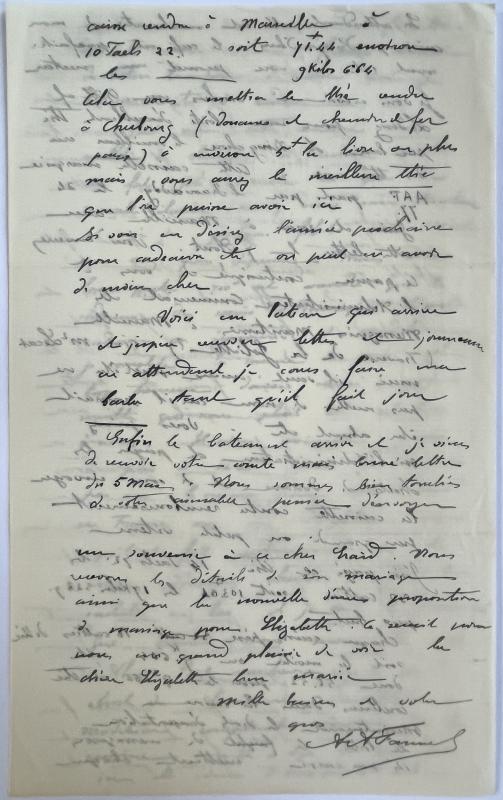 caisse rendu à Marseille à
10 Taels 22. soit 71+44 environ
les 9 Kilos 664
Cela vous mettra le thé rendu
à Cherbourg (douane et chemin de fer
payés) à environ 5+ la livre ou plus
mais vous aurez le meilleure thé
que l'on puisse avoir ici
Si vous en désirez l'année prochaine
pour cadeaux etc on peut en avoir
de moins cher
Voici un bateau qui arrive
et j'espère recevoir lettres et journaux
en attendant je cours faire ma
barbe tant qu'il fait jour
Enfin le bateau est arrivé et je viens
de recevoir votre courte mais bonne lettre
du 5 Mars. Nous sommes bien touchés
de votre aimable pensée d'envoyer
un souvenir à ce cher Chard. Nous
recevons les détails de son mariage
ainsi que la nouvelle d'une proposition
de mariage pour Elizabeth. Ce serait pour
nous un grand plaisir de voir la
chère Elizabeth bien mariée
Mille baisers et votre
gros